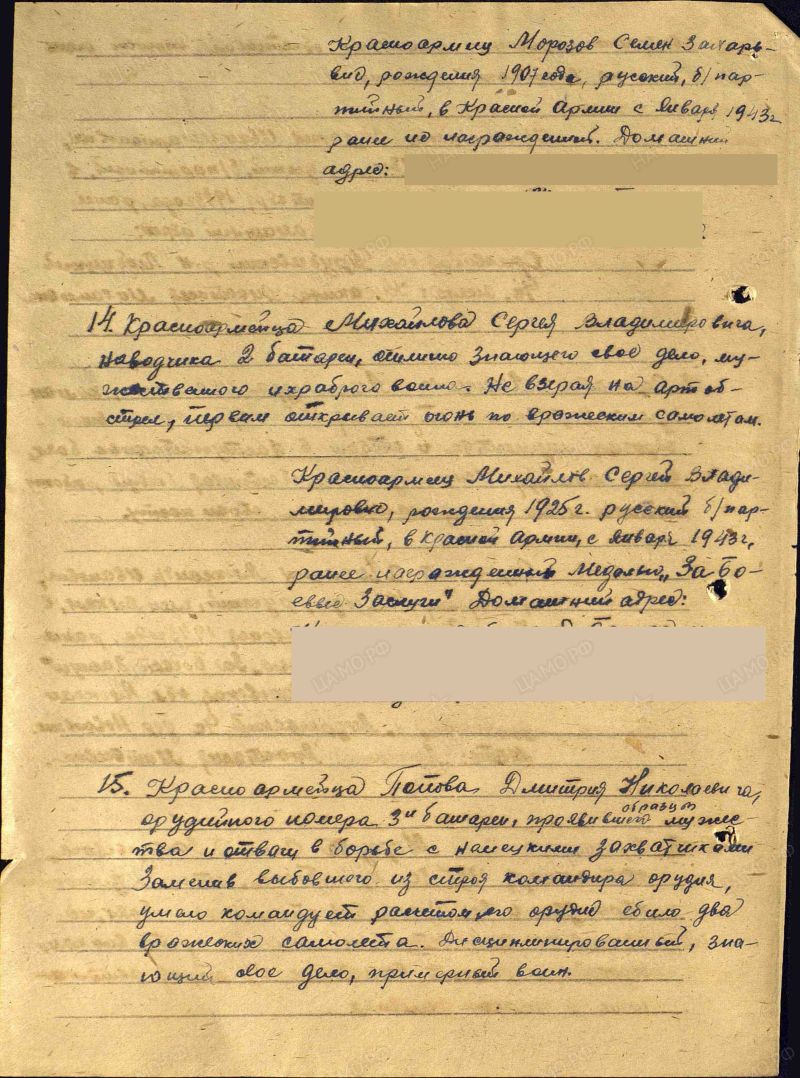 Красноармиец Морозов Семен Захарь-
вич, рождения 1907 года, русский, б/пар-
тийный, в Красной Армии с января 1943г.
ранее не награжденный. Домашний
адрес:
14. Красноармейца Михайлова Сергея Владимировича,
наводчика 2 батареи, отлично знающего свое дело, му-
жественного и храброго воина. Не взирая на арт об-
стрел, первым открывает огонь по вражеским самолетам.
Красноармиец Михайлов Сергей Влади-
мирович, рождения 1925 г. русский б/пар-
тийный, в Красной Армии, с января 1943г,
ранее награжденный Медалью „За Бо-
евые Заслуги" Домашний адрес:
15. Красноармейца Попова Дмитрия Николаевича,
образцы
орудийного номера 3й батареи, проявившего мужес-
тва и отваги в борьбе с немецкими захватчиками
Заменив выбовшего из строя командира орудия,
умело командует расчетом, его орудие сбило два
вражеских самолета. Дисциплинированный, зна-
ющий свое дело, примерный воин.
ЦАМО.РФ
ЦАМО.РФ
ЦАМО.РФ